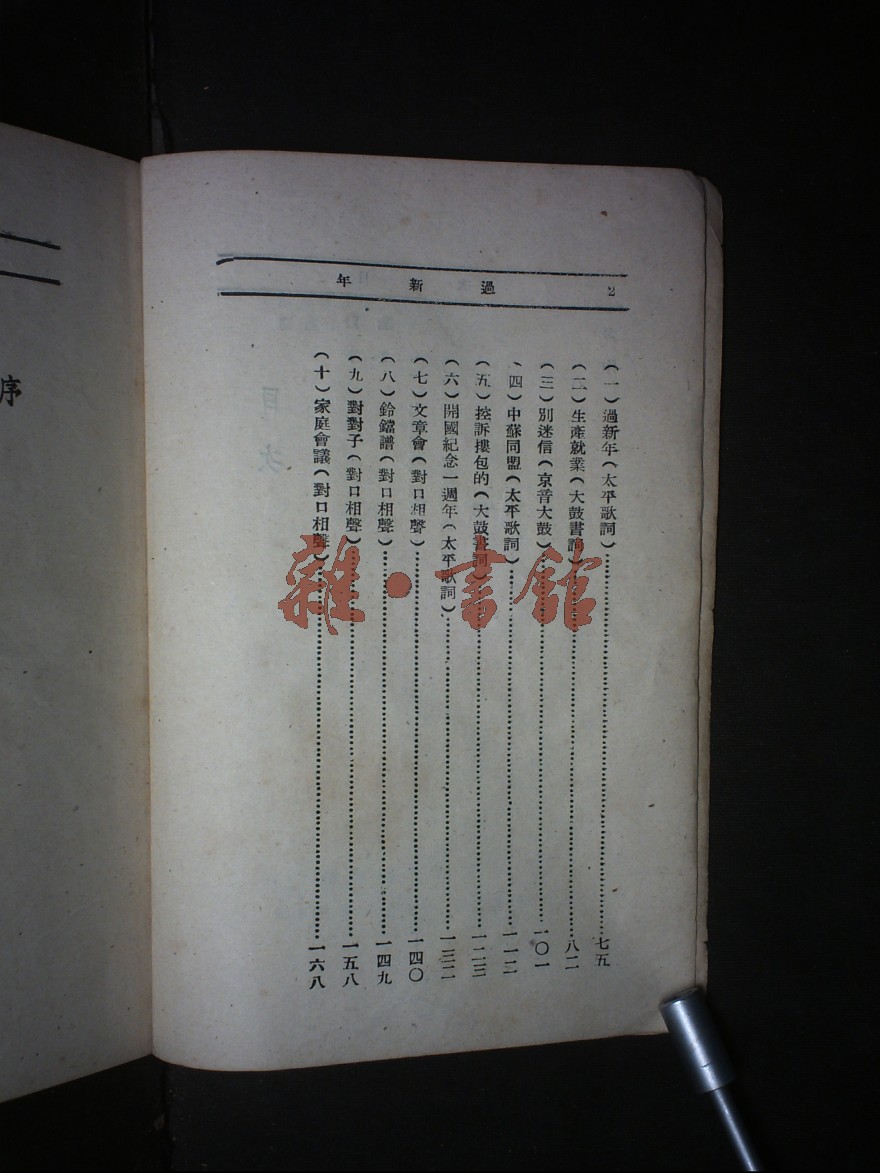 過新年
2
(一)過新年(太平歌詞)……七五
(二)生產就業(大鼓書詞)……八二
(三)別迷信(京音大鼓)……一〇一
(四)中蘇同盟(太平歌詞)……一一二
(五)控訴摟包的(大鼓書詞)……一二三
(六)開國紀念一週年(太平歌詞)……一三二
(七)文章會(對口相聲)……一四〇
(八)鈴鐺譜(對口相聲)……一四九
(九)對對子(對口相聲)……一五八
(十)家庭會議(對口相聲)……一六八
目次
序
雜·書館